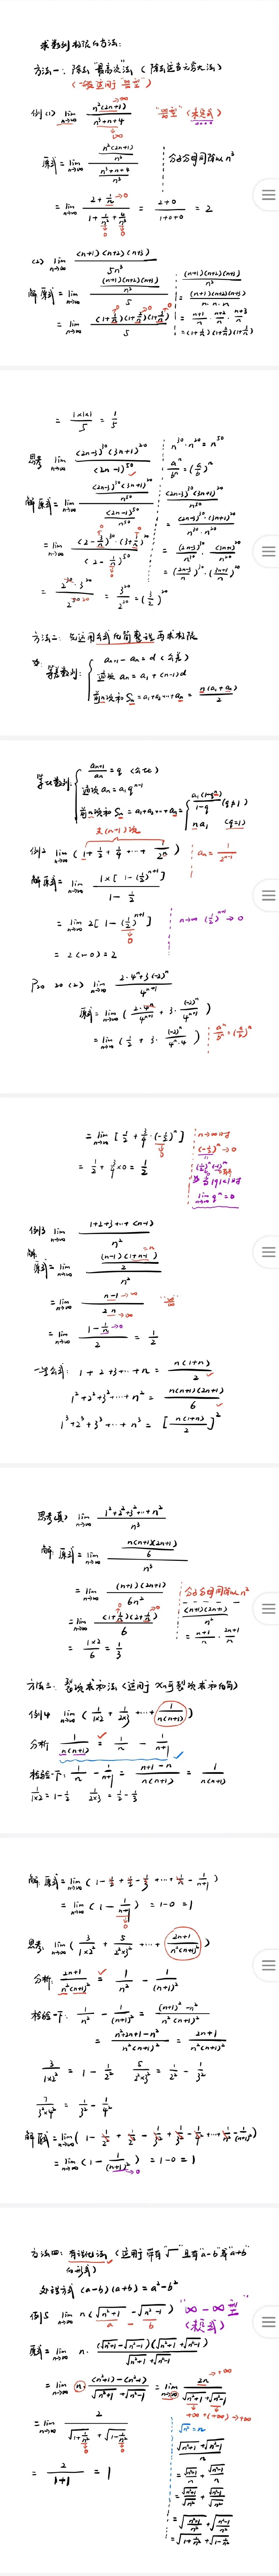 求数列极限的方法：
方法一：除去"最高次"法（除去这当无穷大法）
（一般适用于"∞/∞型"）
例(1) lim n→∞ n²(2n+1) / (n³+n+4) "∞/∞型"（未定式）
原式 = lim n→∞ [n²(2n+1)/n³] / [(n³+n+4)/n³] 分子分母同除以 n³
= (2+1/n) / (1+1/n²+4/n³) = (2+0)/(1+0+0) = 2
(2) lim n→∞ (n+1)(n+2)(n+3) / 5n³
解 原式 = lim n→∞ [(n+1)(n+2)(n+3)/n³] / 5
= lim n→∞ (1+1/n)(1+2/n)(1+3/n) / 5
(n+1)(n+2)(n+3) / n³
= (n+1)(n+2)(n+3) / n·n·n
= (n+1)/n · (n+2)/n · (n+3)/n
= (1+1/n)(1+2/n)(1+3/n)
= 1×1×1 / 5 = 1/5
思考 lim n→∞ (2n-3)³⁰(3n+1)²⁰ / (2n-1)⁵⁰
n³⁰·n²⁰ = n⁵⁰
aⁿ/bⁿ = (a/b)ⁿ
解 原式 = lim n→∞ [(2n-3)³⁰(3n+1)²⁰/n⁵⁰] / [(2n-1)⁵⁰/n⁵⁰]
= lim n→∞ (2-3/n)³⁰·(3+1/n)²⁰ / (2-1/n)⁵⁰
(2n-3)³⁰(3n+1)²⁰ / n⁵⁰
= (2n-3)³⁰·(3n+1)²⁰ / n³⁰·n²⁰
= (2n-3)³⁰/n³⁰ · (3n+1)²⁰/n²⁰
= ((2n-3)/n)³⁰·((3n+1)/n)²⁰
= 2³⁰·3²⁰ / 2⁵⁰ = 3²⁰/2²⁰ = (3/2)²⁰
方法二：先运用公式化简整理再求极限
等差数列：
aₙ₊₁ - aₙ = d（公差）
通项 aₙ = a₁+(n-1)d
前n项和 Sₙ = a₁+a₂+…+aₙ = n(a₁+aₙ)/2
等比数列：
aₙ₊₁/aₙ = q（公比）
通项 aₙ = a₁qⁿ⁻¹
前n项和 Sₙ = a₁+a₂+…+aₙ = a₁(1-qⁿ)/(1-q) (q≠1)
na₁ (q=1)
共(n+1)项
例2 lim n→∞ (1+1/2+1/4+…+1/2ⁿ) aₙ = 1/2ⁿ⁻¹
解 原式 = lim n→∞ 1×[1-(1/2)ⁿ⁺¹] / (1-1/2)
= lim n→∞ 2[1-(1/2)ⁿ⁺¹] n→∞ (1/2)ⁿ⁺¹→0
= 2(1-0) = 2
P₂₀ 20 (2) lim n→∞ (2·4ⁿ+3(-2)ⁿ) / 4ⁿ⁺¹
原式 = lim n→∞ (2·4ⁿ/4ⁿ⁺¹ + 3·(-2)ⁿ/4ⁿ⁺¹)
= lim n→∞ (1/2 + 3·(-2)ⁿ/4ⁿ·4) aⁿ/bⁿ = (a/b)ⁿ
= lim n→∞ [1/2 + 3/4·(-1/2)ⁿ]
= 1/2 + 3/4×0 = 1/2
n→∞时
(-1/2)ⁿ→0
当|q|<1时
lim n→∞ qⁿ = 0
例3 lim n→∞ (1+2+3+…+(n-1)) / n²
解 原式 = lim n→∞ [(n-1)(1+n-1)/2] / n²
= lim n→∞ (n-1)/2n "∞/∞"
= lim n→∞ (1-1/n)/2 = 1/2
一些公式：1+2+3+…+n = n(1+n)/2
1²+2²+3²+…+n² = n(n+1)(2n+1)/6
1³+2³+3³+…+n³ = [n(1+n)/2]²
思考(续) lim n→∞ (1²+2²+3²+…+n²) / n³
解 原式 = lim n→∞ [n(n+1)(2n+1)/6] / n³
= lim n→∞ (n+1)(2n+1) / 6n² 分子分母同除以 n²
= lim n→∞ (1+1/n)(2+1/n) / 6
(n+1)(2n+1)/n²
= (n+1)/n · (2n+1)/n
= 1×2/6 = 1/3
方法三：裂项求和法（适用于 Xn可裂项求和的）
例4 lim n→∞ (1/1×2 + 1/2×3 + … + 1/n(n+1))
分析 1/n(n+1) = 1/n - 1/(n+1)
检验一下：1/n - 1/(n+1) = (n+1-n)/n(n+1) = 1/n(n+1)
1/1×2 = 1-1/2 1/2×3 = 1/2-1/3
解 原式 = lim n→∞ (1-1/2+1/2-1/3+…+1/n-1/(n+1))
= lim n→∞ (1-1/(n+1)) = 1-0 = 1
思考 lim n→∞ (3/1×2² + 5/2²×3² + … + (2n+1)/n²(n+1)²)
分析：(2n+1)/n²(n+1)² = 1/n² - 1/(n+1)²
检验一下：1/n² - 1/(n+1)² = ((n+1)²-n²)/n²(n+1)²
= (n²+2n+1-n²)/n²(n+1)² = (2n+1)/n²(n+1)²
3/1×2² = 1-1/2² 5/2²×3² = 1/2²-1/3²
7/3²×4² = 1/3²-1/4²
解 原式 = lim n→∞ (1-1/2²+1/2²-1/3²+1/3²-1/4²+…+1/n²-1/(n+1)²)
= lim n→∞ (1-1/(n+1)²) = 1-0 = 1
方法四：有理化法（适用于带有"√"且有"a-b"或"a+b"的形式）
处理方式 (a-b)(a+b) = a²-b²
例5 lim n→∞ n(√(n²+1) - √(n²-1)) "∞-∞型"
原式 = lim n→∞ n·(√(n²+1)-√(n²-1))(√(n²+1)+√(n²-1)) / (√(n²+1)+√(n²-1))
= lim n→∞ n·((n²+1)-(n²-1)) / (√(n²+1)+√(n²-1)) = lim n→∞ 2n / (√(n²+1)+√(n²-1))
= lim n→∞ 2 / (√(1+1/n²)+√(1-1/n²))
= 2/(1+1) = 1
√n² = n
(√(n²+1)+√(n²-1))/n
= √(n²+1)/n + √(n²-1)/n
= √(n²+1)/√n² + √(n²-1)/√n²
= √((n²+1)/n²) + √((n²-1)/n²)
= √(1+1/n²) + √(1-1/n²)